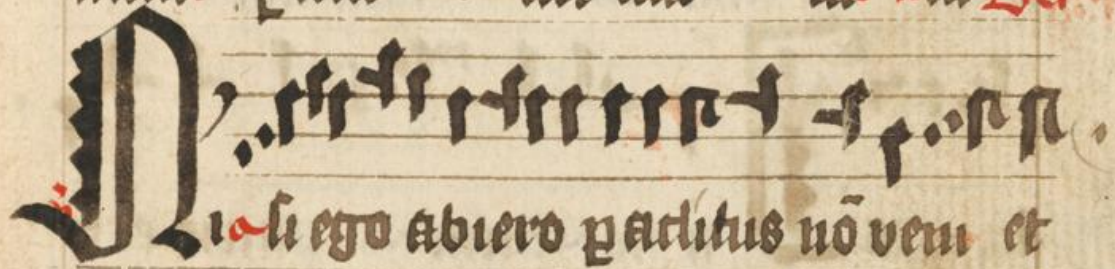 Nisi ego abiero paclitus nō veni et